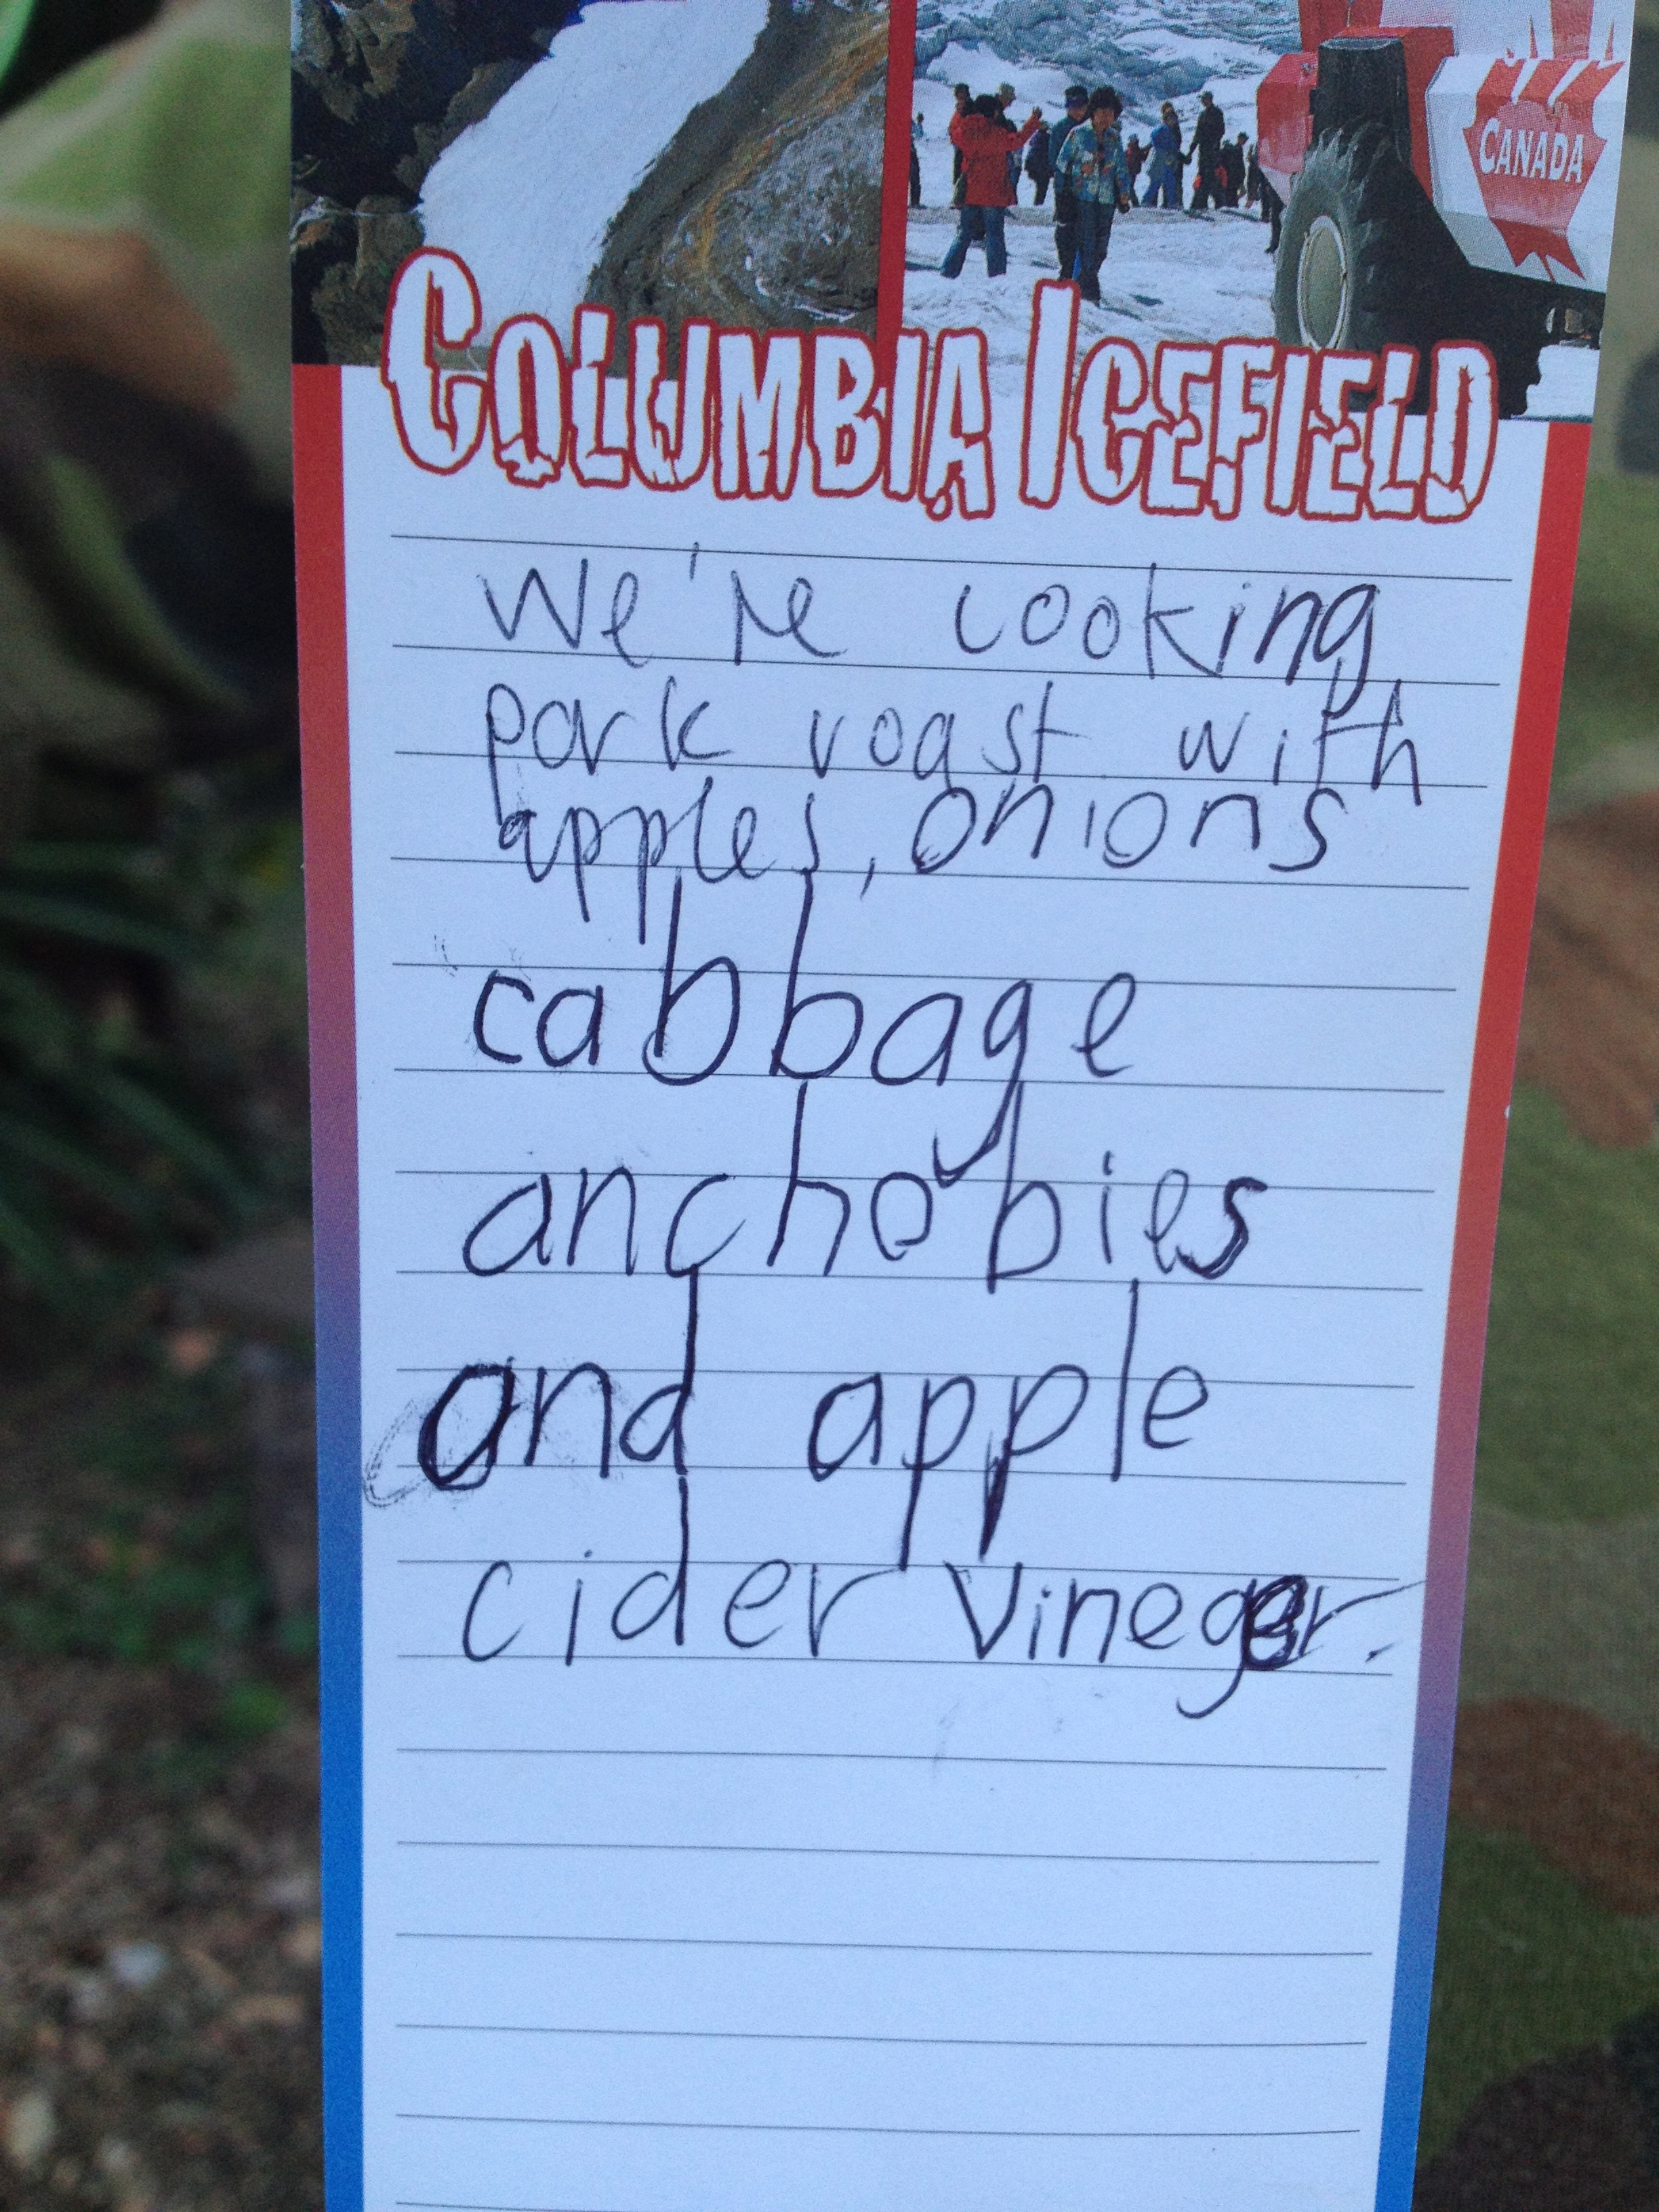 CANADA
COLUMBIA ICEFIELD
we're cooking
pork roast with
apples, onions
cabbage
anchobies
and apple
cider vineger.